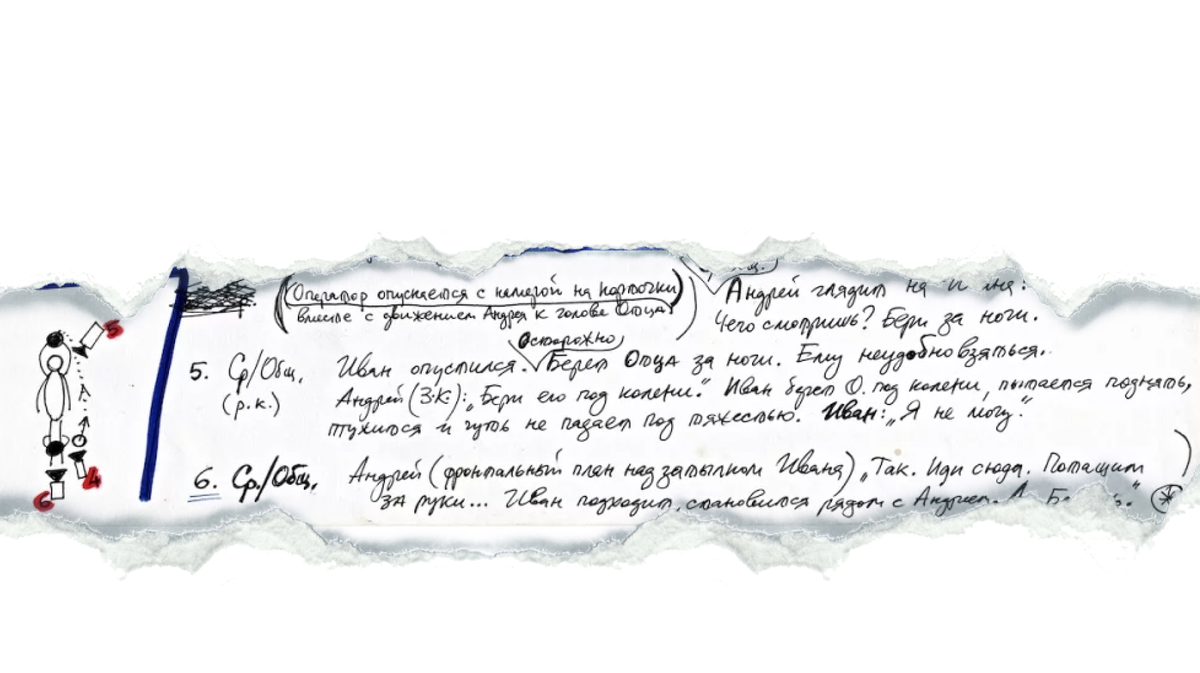 (Оператор опускается с камерой на корточки
вместе с движением Андрея к голове Отца)
Андрей глядит на
Чего смотришь? Бери за ноги.
Осторожно
5. Ср/Общ. Иван опустился. Берет Отца за ноги. Ему неудобно взяться.
(р.к.) Андрей (З.К.): „Бери его под колени." Иван берет О. под колени, пытается поднять,
тужится и чуть не падает под тяжестью. Иван: „Я не могу".
6. Ср./Общ. Андрей (фронтальный план над затылком Ивана) „Так. Иди сюда. Потащим
за руки... Иван подходит, становится рядом с Андреем.
5
4
6